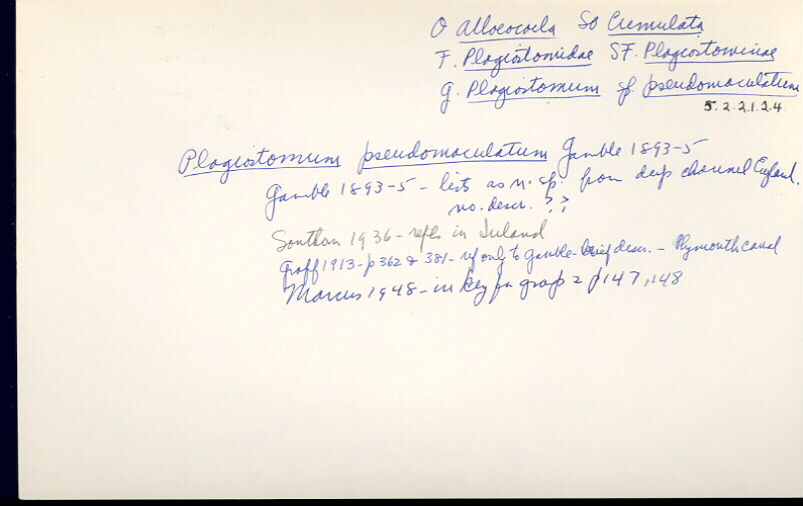 O Alloeocoela SO Cumulata
F. Plagiostomidae SF. Plagiostominae
g. Plagiostomum sp. pseudomaculatum
5.2.2.1.2.4
Plagiostomum pseudomaculatum Gamble 1893-5
Gamble 1893-5 - lists as n. sp. from deep channel England.
no. descr. ??
Southern 1936 - refs in Ireland
Graff 1913 - p 362 & 381 - ref only to Gamble - brief descr. - Plymouth canal
Marcus 1948 - in key for group 2 p 147, 148